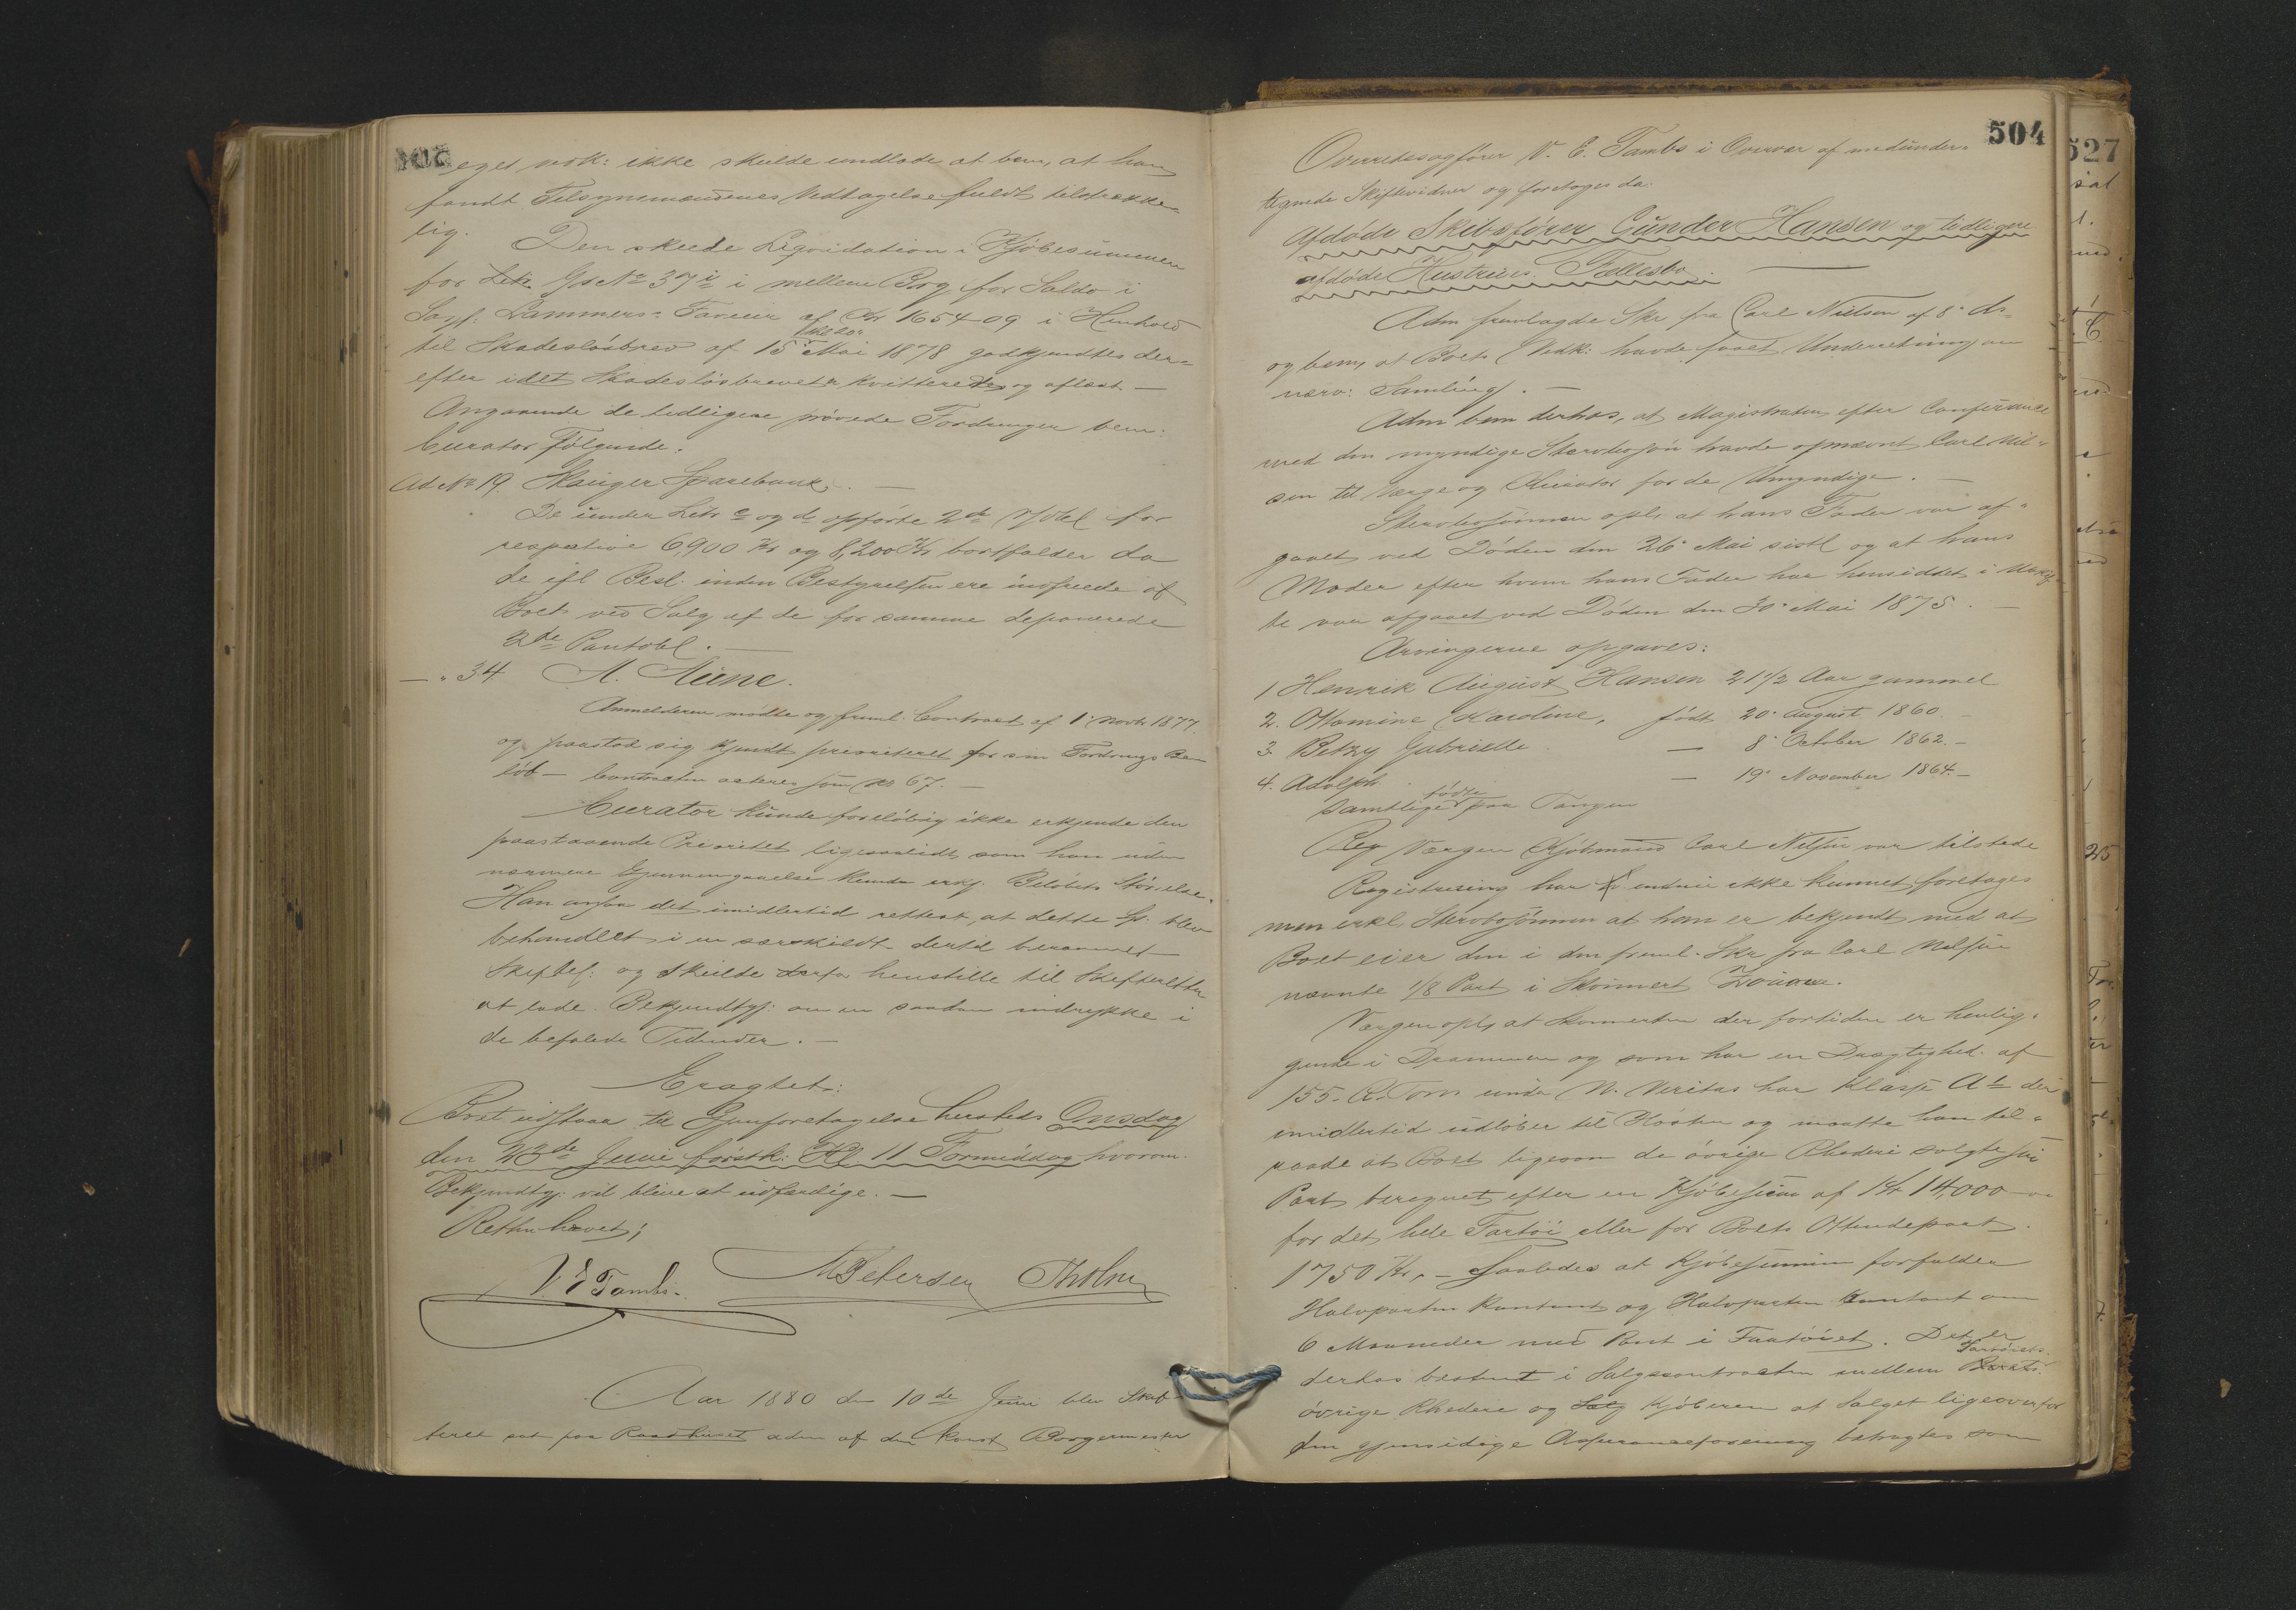 eget vedk: ikke skulde undlade at bem, at han
fandt Tilsynsmændenes Vedtagelse fuldt tilstrække-
lig.
Den skede Liqvidation i Kjøbesummen
for Gs No 37 i mellem Bog for Saldo i
Sagf. Lammers Faveur af Kr 1654-09 i Henhold
til Skadesløsbrev af 15 Mai 1878 godkjendtes der-
efter idet Skadesløsbrevet er kvitteredes og aflæst. —
Angaaende de tidligere prøvede Fordringer bem:
Curator Følgende:
Ad No 19. Skauger Sparebank. —
De under Litr c og d opførte 2de Obl for
respective 6,900 Kr og 8,200 Kr bortfalder da
de ifl Besl. inden Bestyrelsen ere indfriede af
Boet ved Salg af de for samme deponerede
2de Pantobl. —
— " 34 A. Aüne.
Anmelderen mødte og freml. Contract af 1 Novbr 1877.
og paastod sig kjendt prioriteret for sin Fordrings Be-
løb — Contracten acteres som No 67. —
Curator kunde foreløbig ikke erkjende den
paastaaende Prioritet ligesaalidt som han uden
nærmere Gjennemgaaelse kunde erkj. Beløbets Størrelse.
Han ansaa det imidlertid rettest, at dette Sp. blev
behandlet i en særskildt dertil berammet
Skiftes: og skulde derfor henstille til Skifteretten
at lade Bekjendtgj: om en saadan indrykke i
de befalede Tidender. —
Eragtet:
Boet udstaar til Gjenforetagelse hersteds Onsdag
den 23de Juni førstk: Kl 11 Formiddag hvorom
Bekjendtgj: vil blive at udfærdige. —
Retten hævet;
V E Tambs. M Petersen Tholm
Aar 1880 den 10de Juni blev Skif-
teret sat paa Raadhuset adm af den konst Borgermester
504
Overretssagfører V. E. Tambs i Overvær af medunder-
tegnede Skiftevidner og foretoges da:
Afdøde Skibsfører Gunder Hansen og tidligere
afdøde Hustrues Fællesbo. —
Adm fremlagde Skr fra Carl Nielsen af 8 ds
og bem, at Boets Vedk: havde faaet Underretning om
nærv: Samling. —
Adm bem derhos, at Magistraten efter Conferance
med den myndige Stervbosøn havde opnævnt Carl Niel-
sen til Værge og Curator for de Umyndige. —
Stervbosønnen opl, at hans Fader var af-
gaaet ved Døden den 26 Mai sistl og at hans
Moder efter hvem hans Fader har hensiddet i Uskif-
te var afgaaet ved Døden den 30 Mai 1875. —
Arvingerne opgaves:
1 Henrik August Hansen 21 1/2 Aar gammel
2. Ottomine Karoline, født 20 August 1860.
3. Betzy Gabrielle. — 8 October 1862. —
4. Adolph — 19 November 1864. —
samtlige fødte paa Tangen
Værgen Kjøbmand Carl Nielsen var tilstede
Registrering har endnu ikke kunnet foretages
men erkl. Stervbosønnen at han er bekjendt med at
Boet eier den i den freml. Skr fra Carl Nielsen
nævnte 1/8 Part i Skonnert
Værgen opl, at Skonnerten der fortiden er henlig-
gende i Drammen og som har en Drægtighed af
155. R. Tons under N. Veritas har Klasse A1 der
imidlertid udløber til Høsten og maatte han til-
raade at Boet ligesom de øvrige Rhedere solgte sin
Part beregnet efter en Kjøbesum af Kr 14,000
for det hele Fartøi eller for Boets Ottendepart
1750 Kr, — saaledes at Kjøbesummen forfalder
Halvparten kontant og Halvparten kontant om
6 Maaneder med Pant i Fartøiet. Det er
derhos bestemt i Salgscontracten mellem Fartøiets
øvrige Rhedere og Kjøberen at Salget ligeoverfor
den gjensidige Assuranceforening betragtes som
527